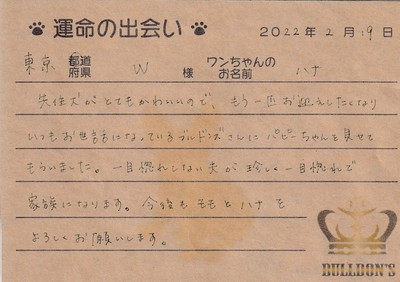 運命の出会い 2022年2月19日
東京 都道府県 W 様 ワンちゃんのお名前 ハナ
先住犬がとてもかわいいので、もう一匹お迎えしたくなり
いつもお世話になっているブルドンズさんにパピーちゃんを見せて
もらいました。一目惚れしない夫が珍しく一目惚れで
家族になります。今後もモモとハナを
よろしくお願いします。
BULLDON'S